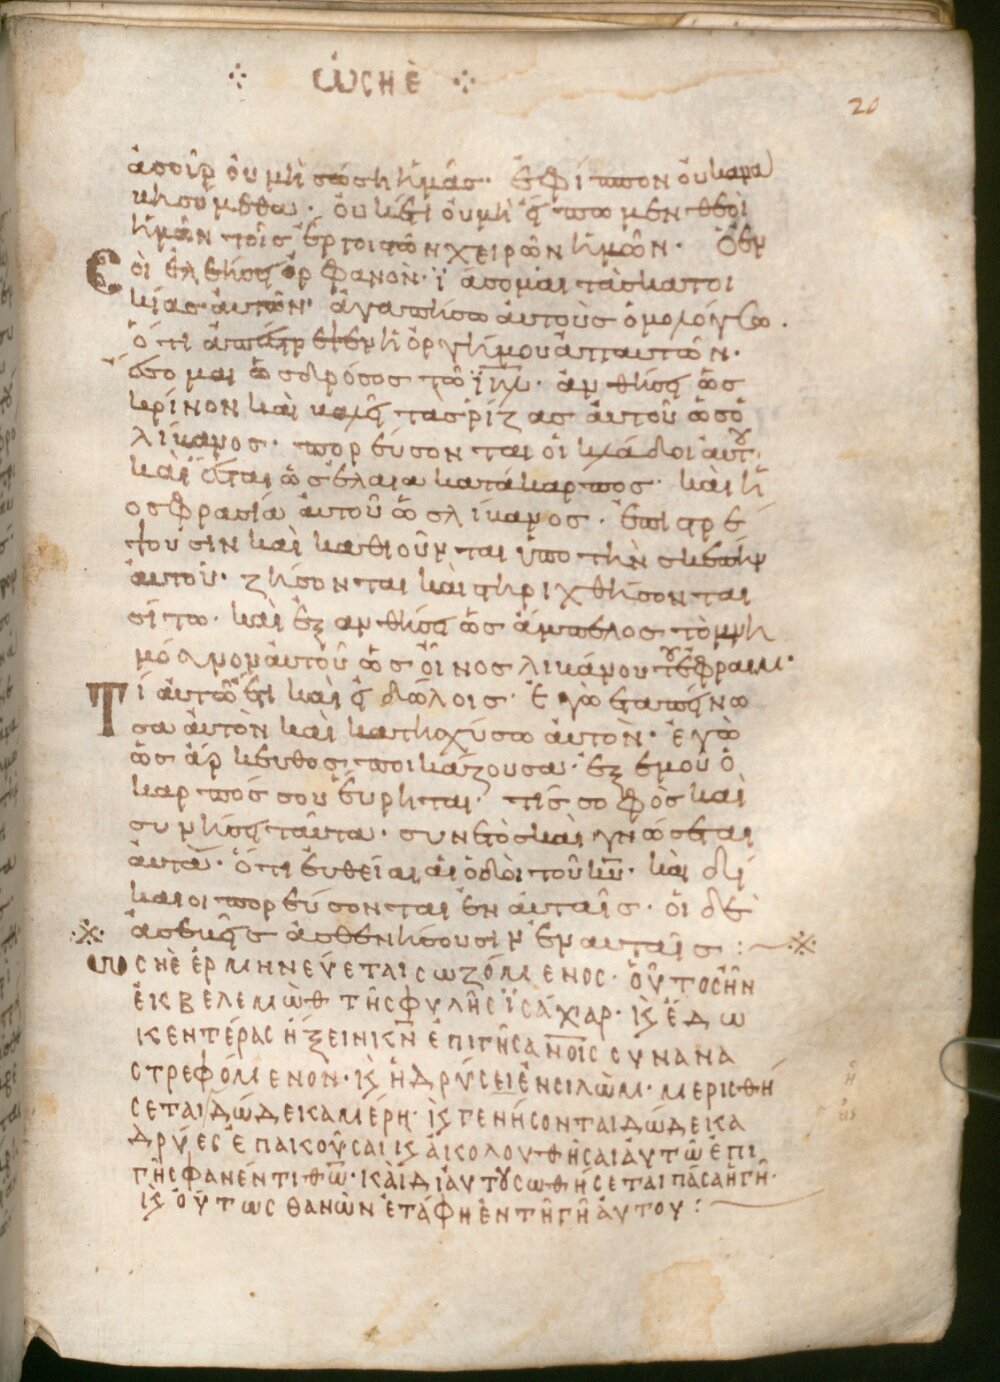 ὠσηὲ
20
ἀσοὺρ ὀυ μὴ σώση ἡμάς· ἐφ ἵππον ὀυκ ἀνα
βησόμεθα· ὀυκέτι ὀυ μὴ εἴπωμεν θεὸι
ἡμῶν τοῖς ἔργοις τῶν χειρῶν ἡμῶν· Ὁ ἐν
σὸι ἐλεήσει ὀρφανόν· ἰάσομαι τὰς κατοι
κίας αὐτῶν· ἀγαπήσω ἀυτοὺς ὁμολόγως·
ὅτι ἀπέστρεψεν ἡ ὀργή μου ἀπ αυτῶν·
ἔσομαι ὡς δρόσος τῶ ιηλ· ἀνθήσει ὡς
κρίνον καὶ βαλεῖ τὰς ῥίζας ἀυτοῦ ὡς ὁ
λίβανος· πορεύσονται οἱ κλάδοι ἀυτου
καὶ ἔσται ὡς ἐλαία κατάκαρπος· καὶ ἡ
οσφρασία ἀυτοῦ ὡς λιβάνος· ἐπιστρέ
ψουσιν καὶ καθιοῦνται ὑπο τὴν σκέπην
ἀυτοῦ· ζήσονται καὶ στηριχθήσονται
σίτω· καὶ ἐξανθήσει ὡς ἄμπελος τὸ μνη
μόσυνον ἀυτοῦ ὡς ὀῖνος λιβάνου τοῦ ἐφραιμ·
Τί ἀυτῶ ἔτι καὶ εἰδώλοις· Ἐγὼ εταπείνω
σα ἀυτὸν καὶ κατισχύσω ἀυτὸν· ἐγὼ
ὡς ἄρκευθος πυκάζουσα· ἐξ ἐμοῦ ὁ
καρπός σου ἕυρηται· τίς σοφὸς καὶ
συνήσει ταῦτα· συνετὸς καὶ γνώσεται
ἀυτά· ὅτι ἐυθεῖαι ἀι ὁδὸι τοῦ κυ· καὶ δί
καιοι πορεύσονται ἐν ἀυταῖς· ὁι δὲ
ἀσεβεῖς ἀσθενήσουσιν ἐν αυταῖς :
ωσηὲ ἑρμηνεύεται σωζόμενος· ὁῦτος ἦν
ἐκ βελεμὼθ τῆς φυλῆς ἰσάχαρ· κ ἔδω
κεν τέρας ἥξειν κν ἐπι γῆς ανοις συνανα
στρεφόμενον· κ ἡ δρύς ει ἐν σιλώμ· μερισθή
σεται δώδεκα μέρη· κ γενήσονται δώδεκα
δρύες ἐπακοῦσαι κ ἀκολουθῆσαι ἀυτῶ ἐπι
γῆς φανέντι θω· κὰι δι ἀυτοῦ σωθήσεται πᾶσα ἡ γῆ·
κ ὁύτως θανὼν ἐτάφη ἐν τῆ γῆ ἀυτου :